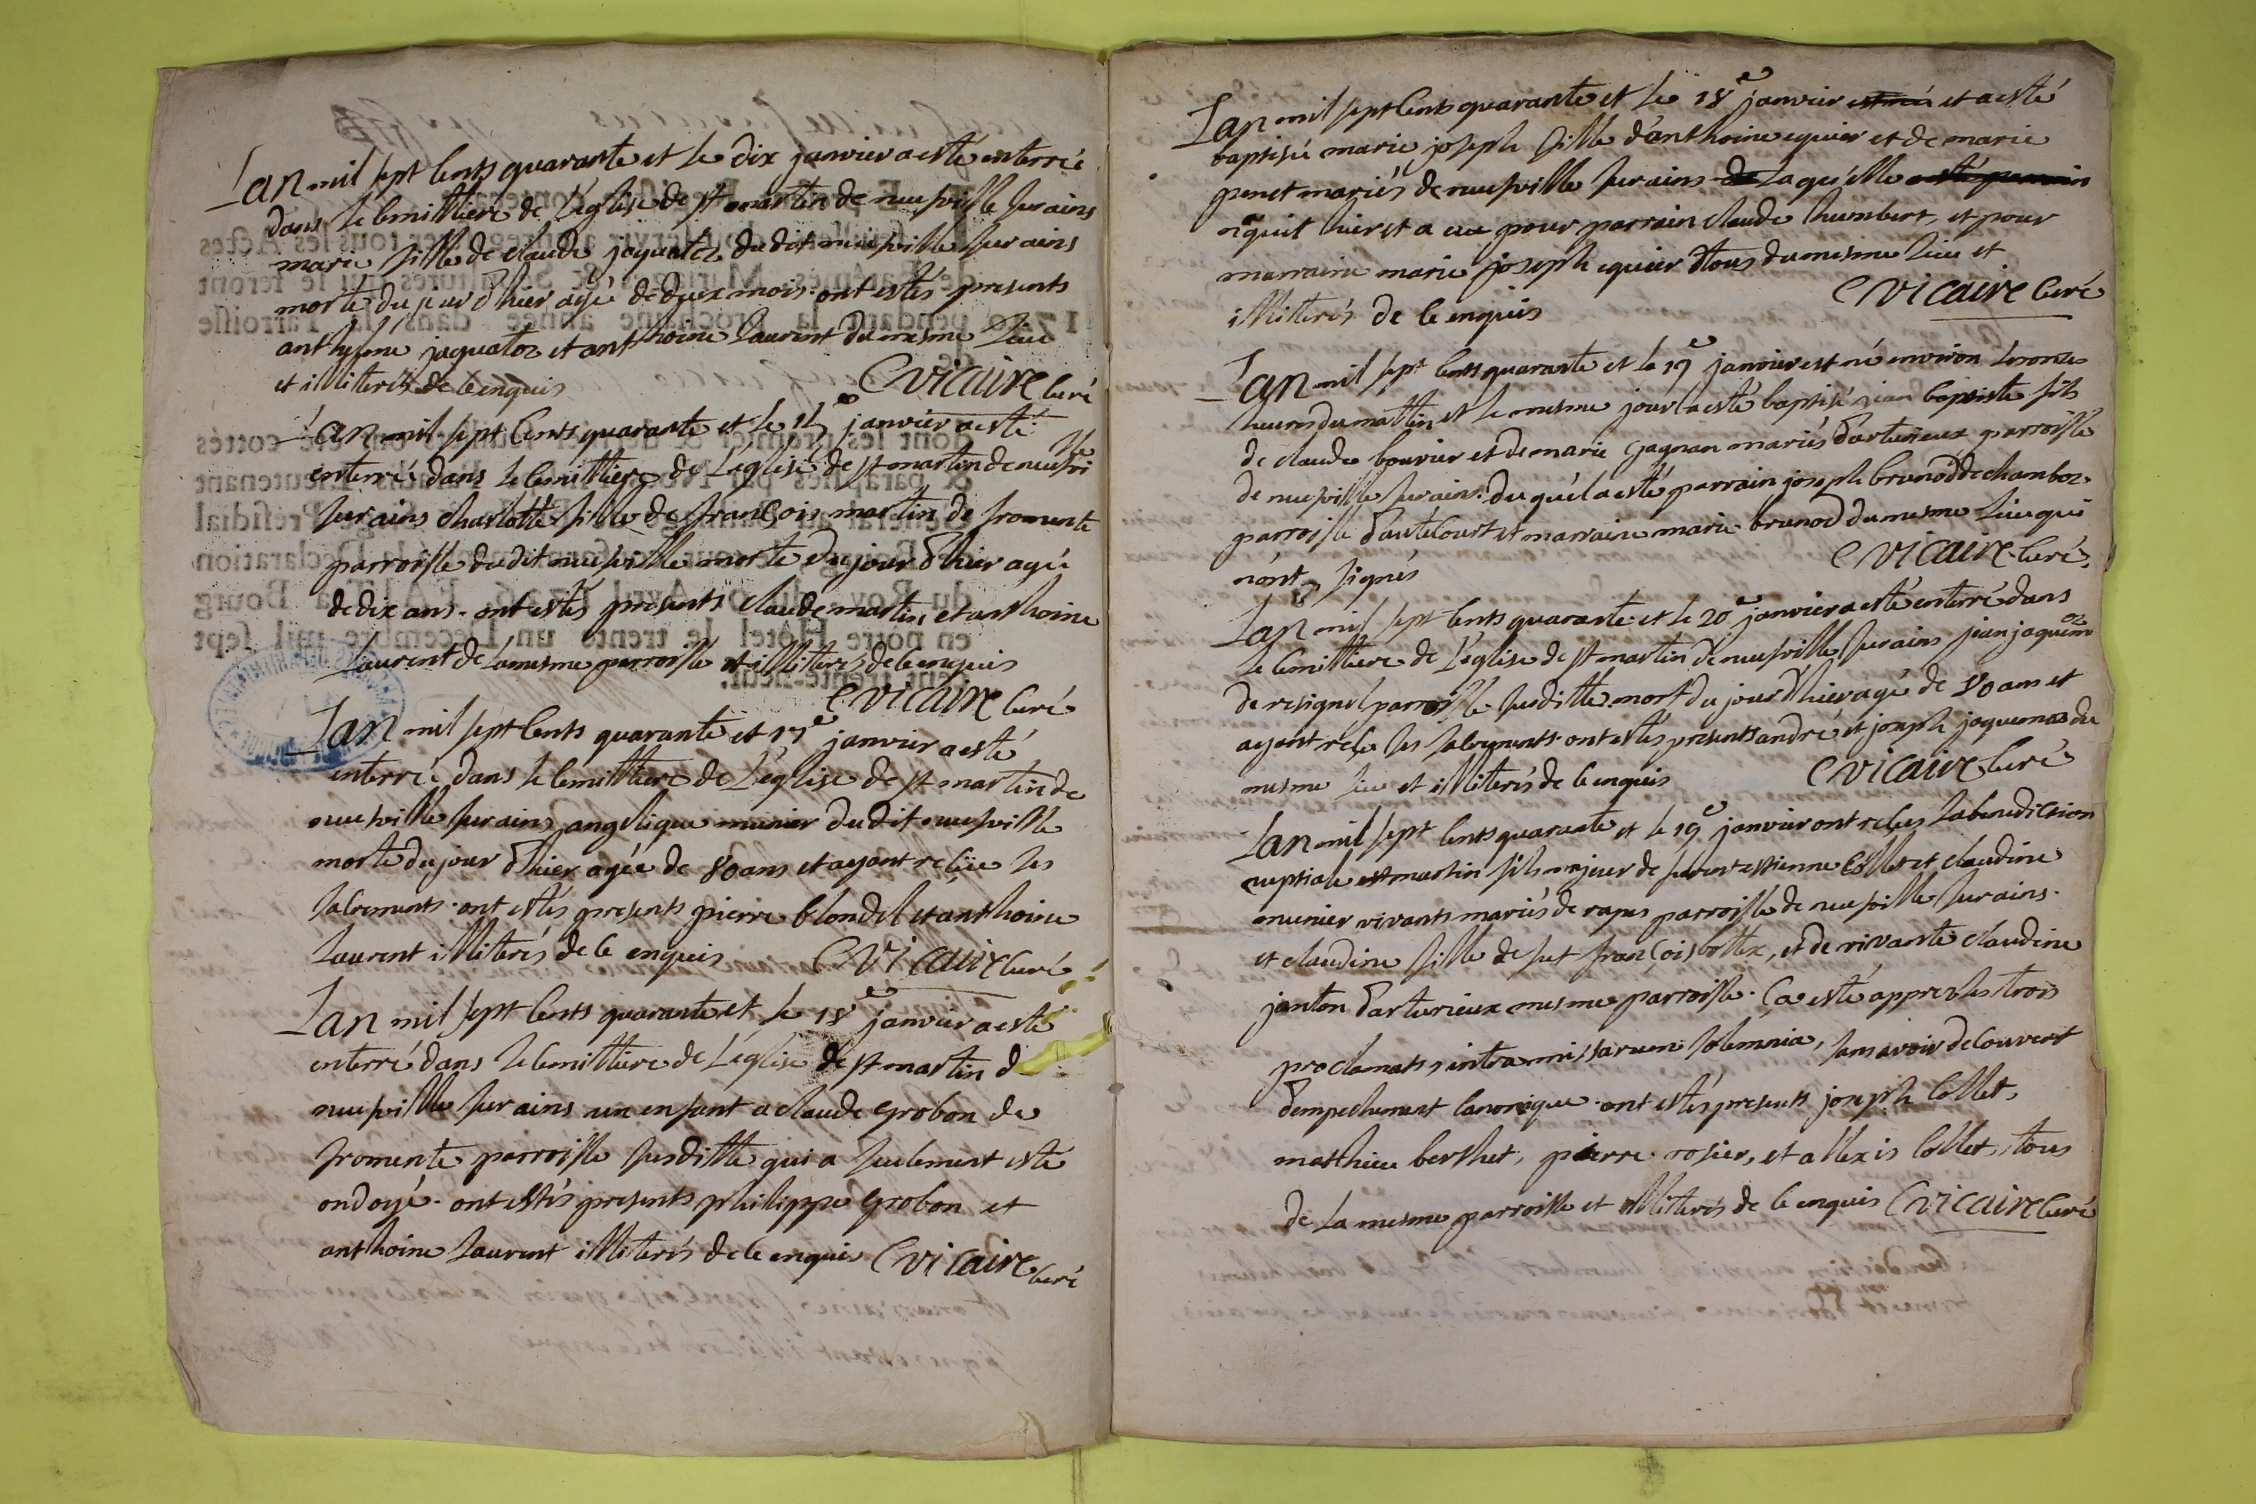 Lan mil sept cents quarante et le dix janvier a esté enterrée
dans le cemittiere de l'église de st martin de neufville sur ains
marie fille de claude jaquatoz dudit neufville sur ains
morte du jour d'hier agée de deux mois. ont estés presents
anthelme jaquatoz et anthoine laurent du mesme lieu
et illiterés de ce enquis
Cvicaire curé
Lan mil sept cents quarante et le janvier a esté
enterrée dans le cemittiere de l'église de st martin de neufville
sur ains charlotte fille de françois martin de fromente
parroisse dudit neufville morte du jour d'hier agée
de dix ans. ont estés presents claude martin, et anthoine
laurent de la mesme parroisse et illiterés de ce enquis
Cvicaire curé
Lan mil sept cents quarante et 17e janvier a esté
enterrée dans le cemittiere de l'église de st martin de
neufville sur ains angelique munier dudit neufville
morte du jour d'hier agée de 80 ans et ayant reçüe les
sacrements. ont estés presents pierre blondel et anthoine
laurent illiterés de ce enquis Cvicaire curé
Lan mil sept cents quarante et le 18e janvier a esté
enterré dans le cemittiere de l'église de st martin d
neufville sur ains un enfant a claude grobon de
fromente parroisse susditte qui a seulement esté
ondoyé. ont estés presents philippe grobon et
anthoine laurent illiterés de ce enquis Cvicaire curé
Lan mil sept cents quarante et le 18e janvier est né et a esté
baptisée marie joseph fille d'anthoine equier et de marie
penet mariés de neufville sur ains de laquelle a esté parrain
nâquit hier et a eu pour parrain claude humbert, et pour
marraine marie joseph equier tous du mesme lieu et
illiterés de ce enquis
Cvicaire curé
Lan mil sept cents quarante et le 19e janvier est né environ les onze
heures du mattin et le mesme jour a esté baptisé jean baptiste fils
de claude bouvier et de marie gagnan mariés d'arturieux parroisse
de neufville sur ains. duquel a esté parrain joseph brunod de chamboz
parroisse d'autecourt et marraine marie brunod du mesme lieu qui
n'ont signés
Cvicaire curé
Lan mil sept cents quarante et le 20e janvier a esté enterré dans
le cemittiere de l'église de st martin de neufville sur ains jean jaquemoz
de resignel parroisse susditte mort du jour d'hier agé de 80 ans et
ayant reçu les sacrements. ont estés presents andré et joseph jaquemoz du
mesme lieu et illiterés de ce enquis
Cvicaire curé
Lan mil sept cents quarante et le 19e janvier ont reçus la benediction
nuptiale martin fils majeur de estienne collet et claudine
munier vivants mariés de rapes parroisse de neufville sur ains.
et claudine fille de fut françois bottex, et de vivante claudine
janton d'arturieux mesme parroisse. ça esté apprez les trois
proclamats, intra missarum solemnia, sans avoir decouvert
d'empechement canonique. ont estés presents joseph collet,
matthieu berthet, pierre rosier, et allexis collet, tous
de la mesme parroisse et illiterés de ce enquis Cvicaire curé